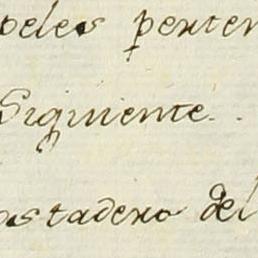 peles perten
Siguiente.
ostadero del